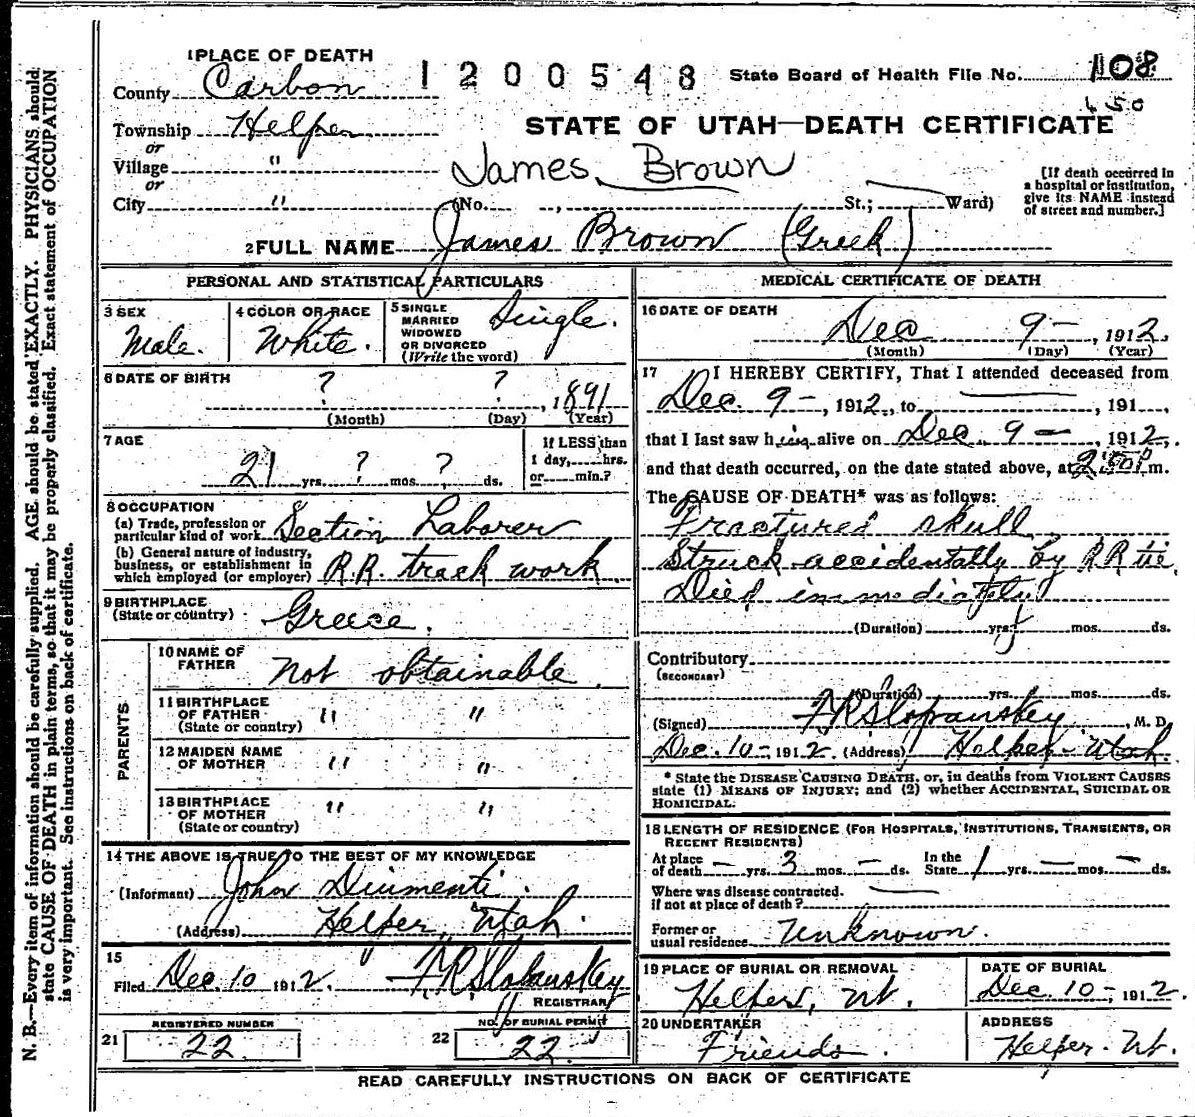 1 PLACE OF DEATH
County Carbon
1200548
State Board of Health File No. 108
450
Township Helper
or
STATE OF UTAH—DEATH CERTIFICATE
Village "
or
James Brown
[If death occurred in
a hospital or institution,
give its NAME instead
of street and number.]
City " (No. , St.; Ward)
2 FULL NAME James Brown (Greek)
PERSONAL AND STATISTICAL PARTICULARS
3 SEX
Male.
4 COLOR OR RACE
White.
5 SINGLE
MARRIED
WIDOWED
OR DIVORCED
(Write the word)
Single.
6 DATE OF BIRTH
? ? , 1891
(Month) (Day) (Year)
7 AGE
21 yrs. ? mos. ? ds.
If LESS than
1 day, hrs.
or min.?
8 OCCUPATION
(a) Trade, profession or
particular kind of work Section Laborer
(b) General nature of industry,
business, or establishment in
which employed (or employer) R.R. track work
9 BIRTHPLACE
(State or country) Greece.
PARENTS
10 NAME OF
FATHER not obtainable.
11 BIRTHPLACE
OF FATHER
(State or country) " "
12 MAIDEN NAME
OF MOTHER " "
13 BIRTHPLACE
OF MOTHER
(State or country) " "
14 THE ABOVE IS TRUE TO THE BEST OF MY KNOWLEDGE
(Informant) John Diumenti.
(Address) Helper, Utah.
15
Filed Dec. 10 1912. F.R. Slopansky
REGISTRAR
21 REGISTERED NUMBER
22
22 NO. OF BURIAL PERMIT
22.
MEDICAL CERTIFICATE OF DEATH
16 DATE OF DEATH
Dec 9 — , 1912.
(Month) (Day) (Year)
17 I HEREBY CERTIFY, That I attended deceased from
Dec. 9 —, 1912, to , 191 ,
that I last saw him alive on Dec. 9 — , 1912,
and that death occurred, on the date stated above, at 2:50 P m.
The CAUSE OF DEATH* was as follows:
Fractured skull
Struck accidentally by R.R. tie.
Died immediately
(Duration) yrs. mos. ds.
Contributory
(SECONDARY)
(Duration) yrs. mos. ds.
(Signed) F R Slopansky, M. D.
Dec. 10 — 1912. (Address) Helper Utah.
* State the DISEASE CAUSING DEATH, or, in deaths from VIOLENT CAUSES
state (1) MEANS OF INJURY; and (2) whether ACCIDENTAL, SUICIDAL OR
HOMICIDAL.
18 LENGTH OF RESIDENCE (FOR HOSPITALS, INSTITUTIONS, TRANSIENTS, OR
RECENT RESIDENTS)
At place
of death — yrs. 3 mos. — ds. In the
State 1 yrs. — mos. — ds.
Where was disease contracted.
if not at place of death? —
Former or
usual residence Unknown.
19 PLACE OF BURIAL OR REMOVAL
Helper, Ut.
DATE OF BURIAL
Dec. 10 —, 1912.
20 UNDERTAKER
Friends.
ADDRESS
Helper. Ut.
READ CAREFULLY INSTRUCTIONS ON BACK OF CERTIFICATE
N. B.—Every item of information should be carefully supplied. AGE should be stated EXACTLY. PHYSICIANS should
state CAUSE OF DEATH in plain terms, so that it may be properly classified. Exact statement of OCCUPATION
is very important. See instructions on back of certificate.